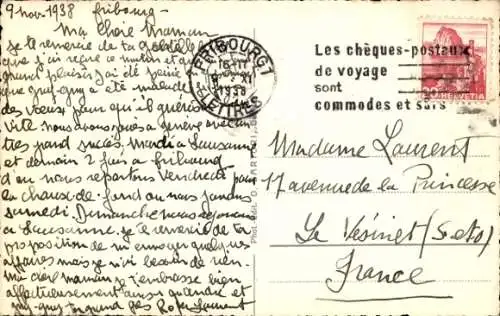 9 nov 1938 fribourg
Ma Chère Maman
je te remercie de ta
que j'ai reçue ce matin et qui
grand plaisir j'ai été peiné
que guy-guy a été malade
des vœux pour qu'il guérisse
vite nous avons joué à genève avec un
très grand succès. Mardi à Lausanne
et demain 2 fois à fribourg
d'où nous repartons Vendredi pour
la chaux-de-fond où nous jouons
samedi. Dimanche nous rejouons
à Lausanne. je te remercie de ta
proposition de m'envoyer quelques
affaires mais je n'ai besoin de rien.
Ma chère maman je t'embrasse bien
affectueusement ainsi qu'andré et
guy-guy ton grand fils Roger Laurent
FRIBOURG 1
1938
LETTRES
Les chèques-postaux
de voyage
sont
commodes et sûrs
HELVETIA
Madame Laurent
17 avenue de la Princesse
Le Vésinet (S-et-O)
France